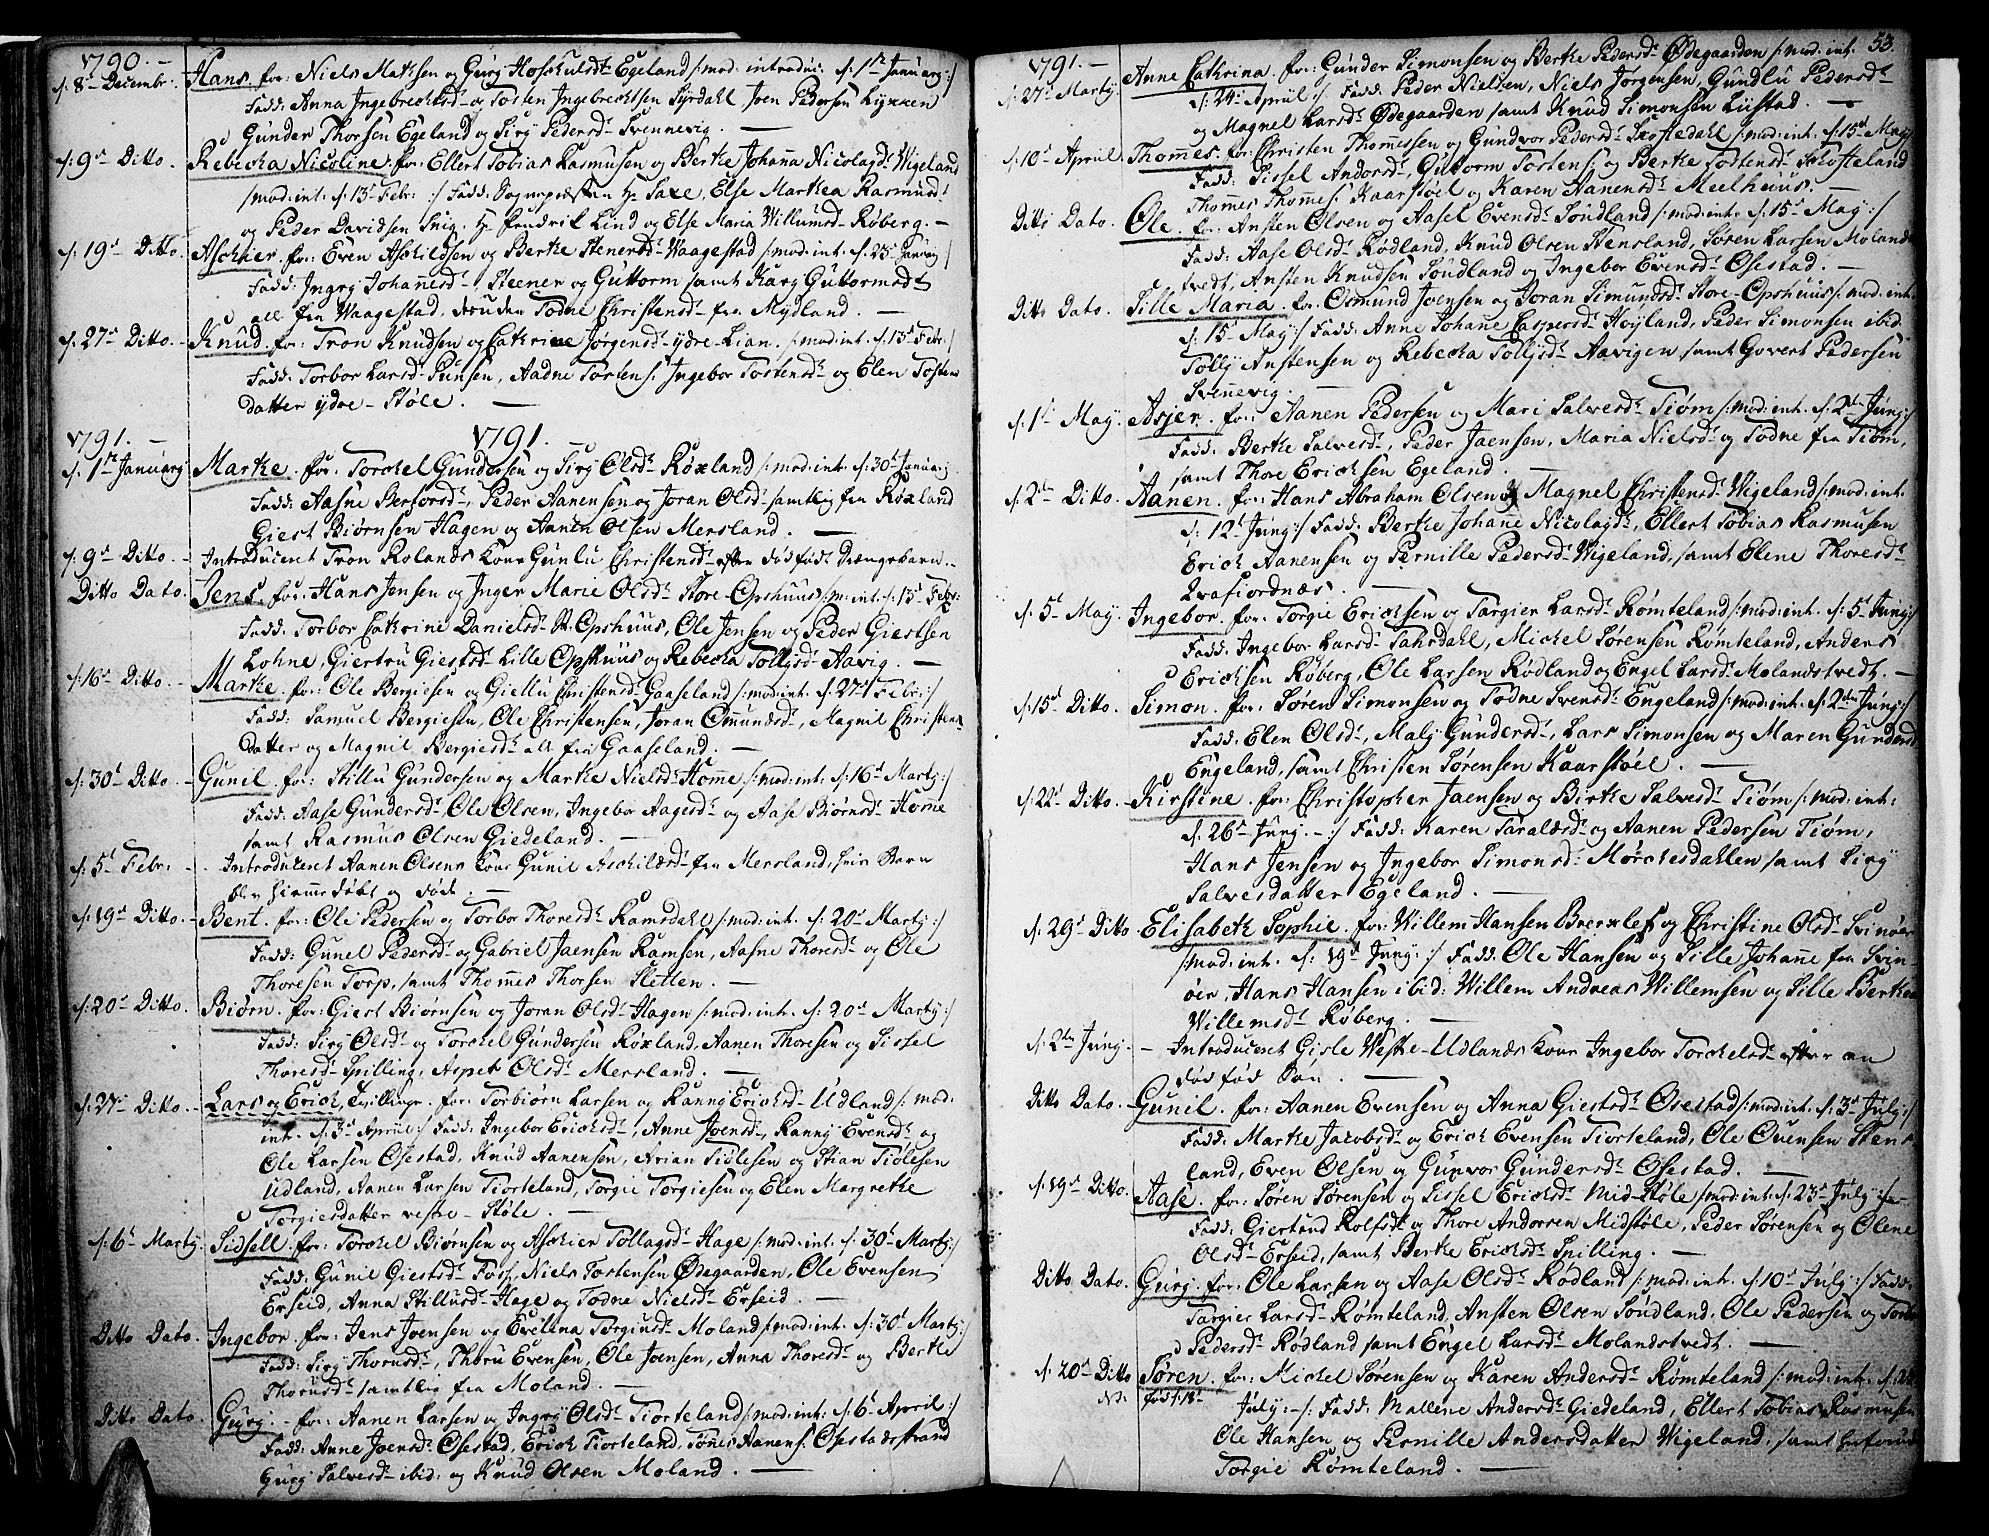 1790. –
d: 8de Decembr. Hans. for: Niels Mathsen og Gurg Hoschuldsdr Egeland /: mod: introduc: d: 1ste January :/
Fadd: Anna Ingebrechtsdr og Tosten Ingebrechtsen Sÿrdahl Joen Pedersen Lyxxen
Gunder Thorsen Egeland og Sirg Pedersdr Svennevig. —
d: 9de Ditto. Rebecka Nicoline. for: Ellert Tobias Rasmusen og Berte Johanna Nicolaydr Wigeland
/: mod: int: d: 13de Febr: :/ Fadd: Sognepræsten Hr Saxe, Else Marthea Rasmusdr
og Peder Davidsen Snig. Hr Hendrik Lind og Else Maria Willumsdr Røberg. —
d: 19de Ditto. Aschier. for: Even Aschildsen og Berte Stenersdr Waagestad /: mod: int: d: 23de January :/
Fadd: Ingrg Johanesdr Steener og Guttorm samt Karg Guttormsdr
all fra Waagestad, desuden Todne Christensdr fra Mydland. —
d: 27de Ditto. – Knud. for: Tron Knudsen og Cathrine Jørgensdr ydre-Lian. /: mod: int: d: 13de Febr: :/
Fadd: Torbor Larsdr Aadne Tostens: Ingebor Tostensdr og Elen Tostens
datter ydre-Støle. —
1791. – 1791.
d: 1ste January Marthe. for: Torchel Gundersen og Sirg Olsdr Røxland /: mod: int: d: 30te January
Fadd: Aasne Berforsdr, Peder Aanensen og Joran Olsdr samtlig fra Røxland
Giest Biørnsen Hagen og Aanen Olsen Mersland. —
d: 9de Ditto – Introduceret Tron Rolands Kone Gunlu Christensdr efter dødfødt Drængebarn. –
Ditto Dato. Jens. for: Hans Jensen og Inger Marie Olsdr Store-Opshuus /: m: int: d: 13de Febr:
Fadd: Torbor Cathrine Danielsdr St: Opshuus, Ole Jensen og Peder Giestsen
Lohne, Giertru Giestsdr Lille Opshuus og Rebecka Tollgsdr Aavig. —
d: 16de Ditto. – Marthe. for: Ole Bergiesen og Giellu Christensdr Gaaseland /: mod: int: d: 27de Febr: :/
Fadd: Samuel Bergiesen, Ole Christensen, Joran Omundsdr, Magnil Christens
datter og Magnil Bergiesdr all fra Gaaseland. —
d: 30te Ditto – Gunil. for: Stillu Gundersen og Marthe Nielsdr Homme /: mod: int: d: 16de Marty :/
Fadd: Aase Gundersdr, Ole Olsen, Ingebor Aagesdr og Aase Biørnsdr Home
samt Rasmus Olsen Giedeland. —
d: 5te Febr: – Introduceret Aanen Olsens Kone Gunil Aschildsdr fra Mersland, hvis Barn
blev hiemmedøbt og døde. —
d: 19de Ditto. – Bent. for: Ole Pedersen og Torbor Thoresdr Ramsdahl /: mod: int: d: 20de Marty :/
Fadd: Gunel Pedersdr og Gabriel Jaensen Ramsen, Aasne Thoresdr og Ole
Thoresen Torp, samt Thomes Thorsen Sletten. —
d: 20de Ditto. Biørn. for: Giest Biørnsen og Joran Olsdr Hagen /: mod: int: d: 20de Marty :/
Fadd: Sirg Olsdr og Torchel Gundersen Røxland, Aanen Thoresen og Sissel
Thoresdr Spilling, Aspet Olsdr Mersland. —
d: 27de Ditto. – Lars og Erich, Tvillinge. for: Torbiørn Larsen og Ranng Erichsdr Udland /: mod:
int: d: 3de April :/ Fadd: Ingebor Erichsdr, Anne Joensdr, Ranng Evensdr og
Ole Larsen Øsestad, Knud Aanensen, Arian Siølesen og Stian Siølesen
Udland, Aanen Larsen Tiorteland, Torgie Torgiesen og Elen Margrethe
Torgiesdatter vestre-Støle. —
d: 6te Marty Sidsell. for: Torchel Biørnsen og Aschier Tollagsdr Hage /: mod: int: d: 30te Marty :/
Fadd: Gunil Giestsdr Foss, Niels Tostensen Ødegaarden, Ole Evensen
Erseid, Anna Stillusdr Hage og Todne Nielsdr Erseid. —
Ditto Dato. Ingebor. for: Jens Joensen og Evelina Torgiusdr Moland /: mod: int: d: 30te Marty :/
Fadd: Sirg Thorusdr, Thoru Evensen, Ole Joensen, Anna Thoresdr og Berthe
Thorusdr samtlig fra Moland. —
Ditto Dato. Gurg. – for: Aanen Larsen og Ingrg Olsdr Tiorteland /: mod: int: d: 6te April :/
Fadd: Anne Joensdr Øsestad, Erich Tiorteland, Tønes Aanens: Øsestadsstrand
Gurg Salvesdr ibid: og Knud Olsen Moland. —
53.
1791. –
d: 27de Marty. Anne Cathrina. for: Gunder Simonsen og Berthe Pedersdr Ødegaarden /: mod: int:
d: 24de April :/ Fadd: Peder Nielsen, Niels Jørgensen, Gundlu Pedersdr
og Magnel Larsdr Ødegaarden samt Knud Simonsen Liistad. —
d: 10de April. Thomes. for: Christen Thomessen og Gundvor Pedersdr Skoftedahl /: mod: int: d: 15de May
Fadd: Sissel Andorsdr, Guttorm Tostens: og Berthe Tostensdr Skofteland
Thomes Thomes: Kaarstøel og Karen Aanensdr Meelhuus. —
Ditto Dato. Ole. for: Ansten Olsen og Aasel Evensdr Søndland /: mod: int: d: 15de May :/
Fadd: Aase Olsdr Rødland, Knud Olsen Stensland, Søren Larsen Moland
tvedt, Ansten Knudsen Søndland og Ingebor Evensdr Øsestad. —
Ditto Dato. Sille Maria. for: Osmund Joensen og Joran Simundsdr Store-Opshuus /: mod: int:
d: 15de May :/ Fadd: Anne Johane Caspersdr Høyland, Peder Simonsen ibid
Tollg Anstensen og Rebecka Tollgsdr Aavigen samt Govert Pedersen
Svennevig. —
d: 1ste May. Asjer. for: Aanen Pedersen og Mari Salvesdr Tiøm /: mod: int: d: 2den Juny :/
Fadd: Berthe Salvesdr, Peder Jaensen, Maria Nielsdr og Todne fra Tiøm,
samt Thore Erichsen Egeland. —
d: 2den Ditto. Aanen. for: Hans Abraham Olsen og Magnel Christensdr Wigeland /: mod: int:
d: 12te Juny :/ Fadd: Berthe Johane Nicolaydr, Ellert Tobias Rasmusen
Erich Aanensen og Pernille Pedersdr Wigeland, samt Elene Thoresdr
Qvafiordnæs. —
d: 5te May. Ingebor. for: Torgie Erichsen og Targier Larsdr Rømteland /: mod: int: d: 5te Juny :/
Fadd: Ingebor Larsdr Fahrsdahl, Michel Sørensen Rømteland, Anders
Erichsen Røberg, Ole Larsen Rødland og Engel Larsdr Molandstvedt. —
d: 15de Ditto. Simon. for: Søren Simonsen og Todne Svensdr Engeland /: mod: int: d: 2den Juny :/
Fadd: Elen Olsdr, Malg Gundersdr, Lars Simonsen og Maren Gundersdr
Engeland, samt Christen Sørensen Kaarstøel. —
d: 22de Ditto. – Kirstine. for: Christopher Jaensen og Birthe Salvesdr Tiøm /: mod: int:
d: 26de Juny – :/ Fadd: Karen Taraldsdr og Aanen Pedersen Tiøm,
Hans Jensen og Ingebor Simonsd: Mørchesdallen samt Sirg
Salvesdatter Egeland. —
d: 29de Ditto Elisabeth Sophie. for: Willem Hansen og Christine Olsdr Svinøer
/: mod: int: d: 19de Juny: :/ Fadd: Ole Hansen og Sille Johane fra Svin
øer, Hans Hansen ibid: Willem Andreas Willemsen og Sille Berthea
Willemsdr Røberg. —
d: 2den Juny. – Introduceret Gisle Westre-Udlands Kone Ingebor Torchelsdr efter en
død fød Søn. —
Ditto Dato. – Gunil. for: Aanen Evensen og Anna Giestsdr Øsestad /: mod: int: d: 3de July :/
Fadd: Marthe Jacobsdr og Erich Evensen Tiorteland, Ole Evensen Stens
land, Even Olsen og Gunvor Gundersdr Øsestad. —
d: 19de Ditto. Aase. for: Søren Sørensen og Sissel Erichsdr Mid-Støle /: mod: int: d: 23de July :/
Fadd: Giertrud Rolfsdr og Thore Andersen Midstøle, Peder Sørensen og Olene
Olsdr Erseid, samt Berthe Erichsdr Spilling. —
Ditto Dato. Gurg. for: Ole Larsen og Aase Olsdr Rødland /: mod: int: d: 10de July :/ Fadd:
Targier Larsdr Rømteland, Ansten Olsen Søndland, Ole Pedersen og Torbor
Pedersdr Rødland samt Engel Larsdr Molandstvedt. —
d: 20de Ditto Søren. for: Michel Sørensen og Karen Andersdr Rømteland /: mod: int: d:
NB. fød d: 18de July: – :/ Fadd: Mallene Andersdr Giedeland, Ellert Tobias Rasmusen
Ole Hansen og Pernille Andersdatter Wigeland: samt
Torgie Rømteland. —